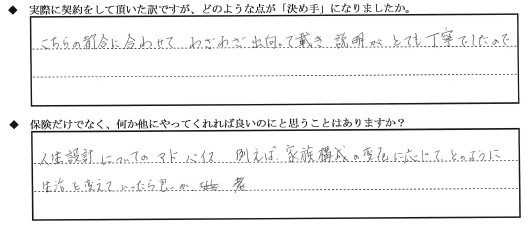 ◆ 実際に契約をして頂いた訳ですが、どのような点が「決め手」になりましたか。
こちらの都合に合わせて わざわざ出向って戴き 説明が とても丁寧でしたので
◆ 保険だけでなく、何か他にやってくれれば良いのにと思うことはありますか？
人生設計についてのアドバイス 例えば 家族構成の変化に応じて、どのように
生活を変えていったら良いか 老